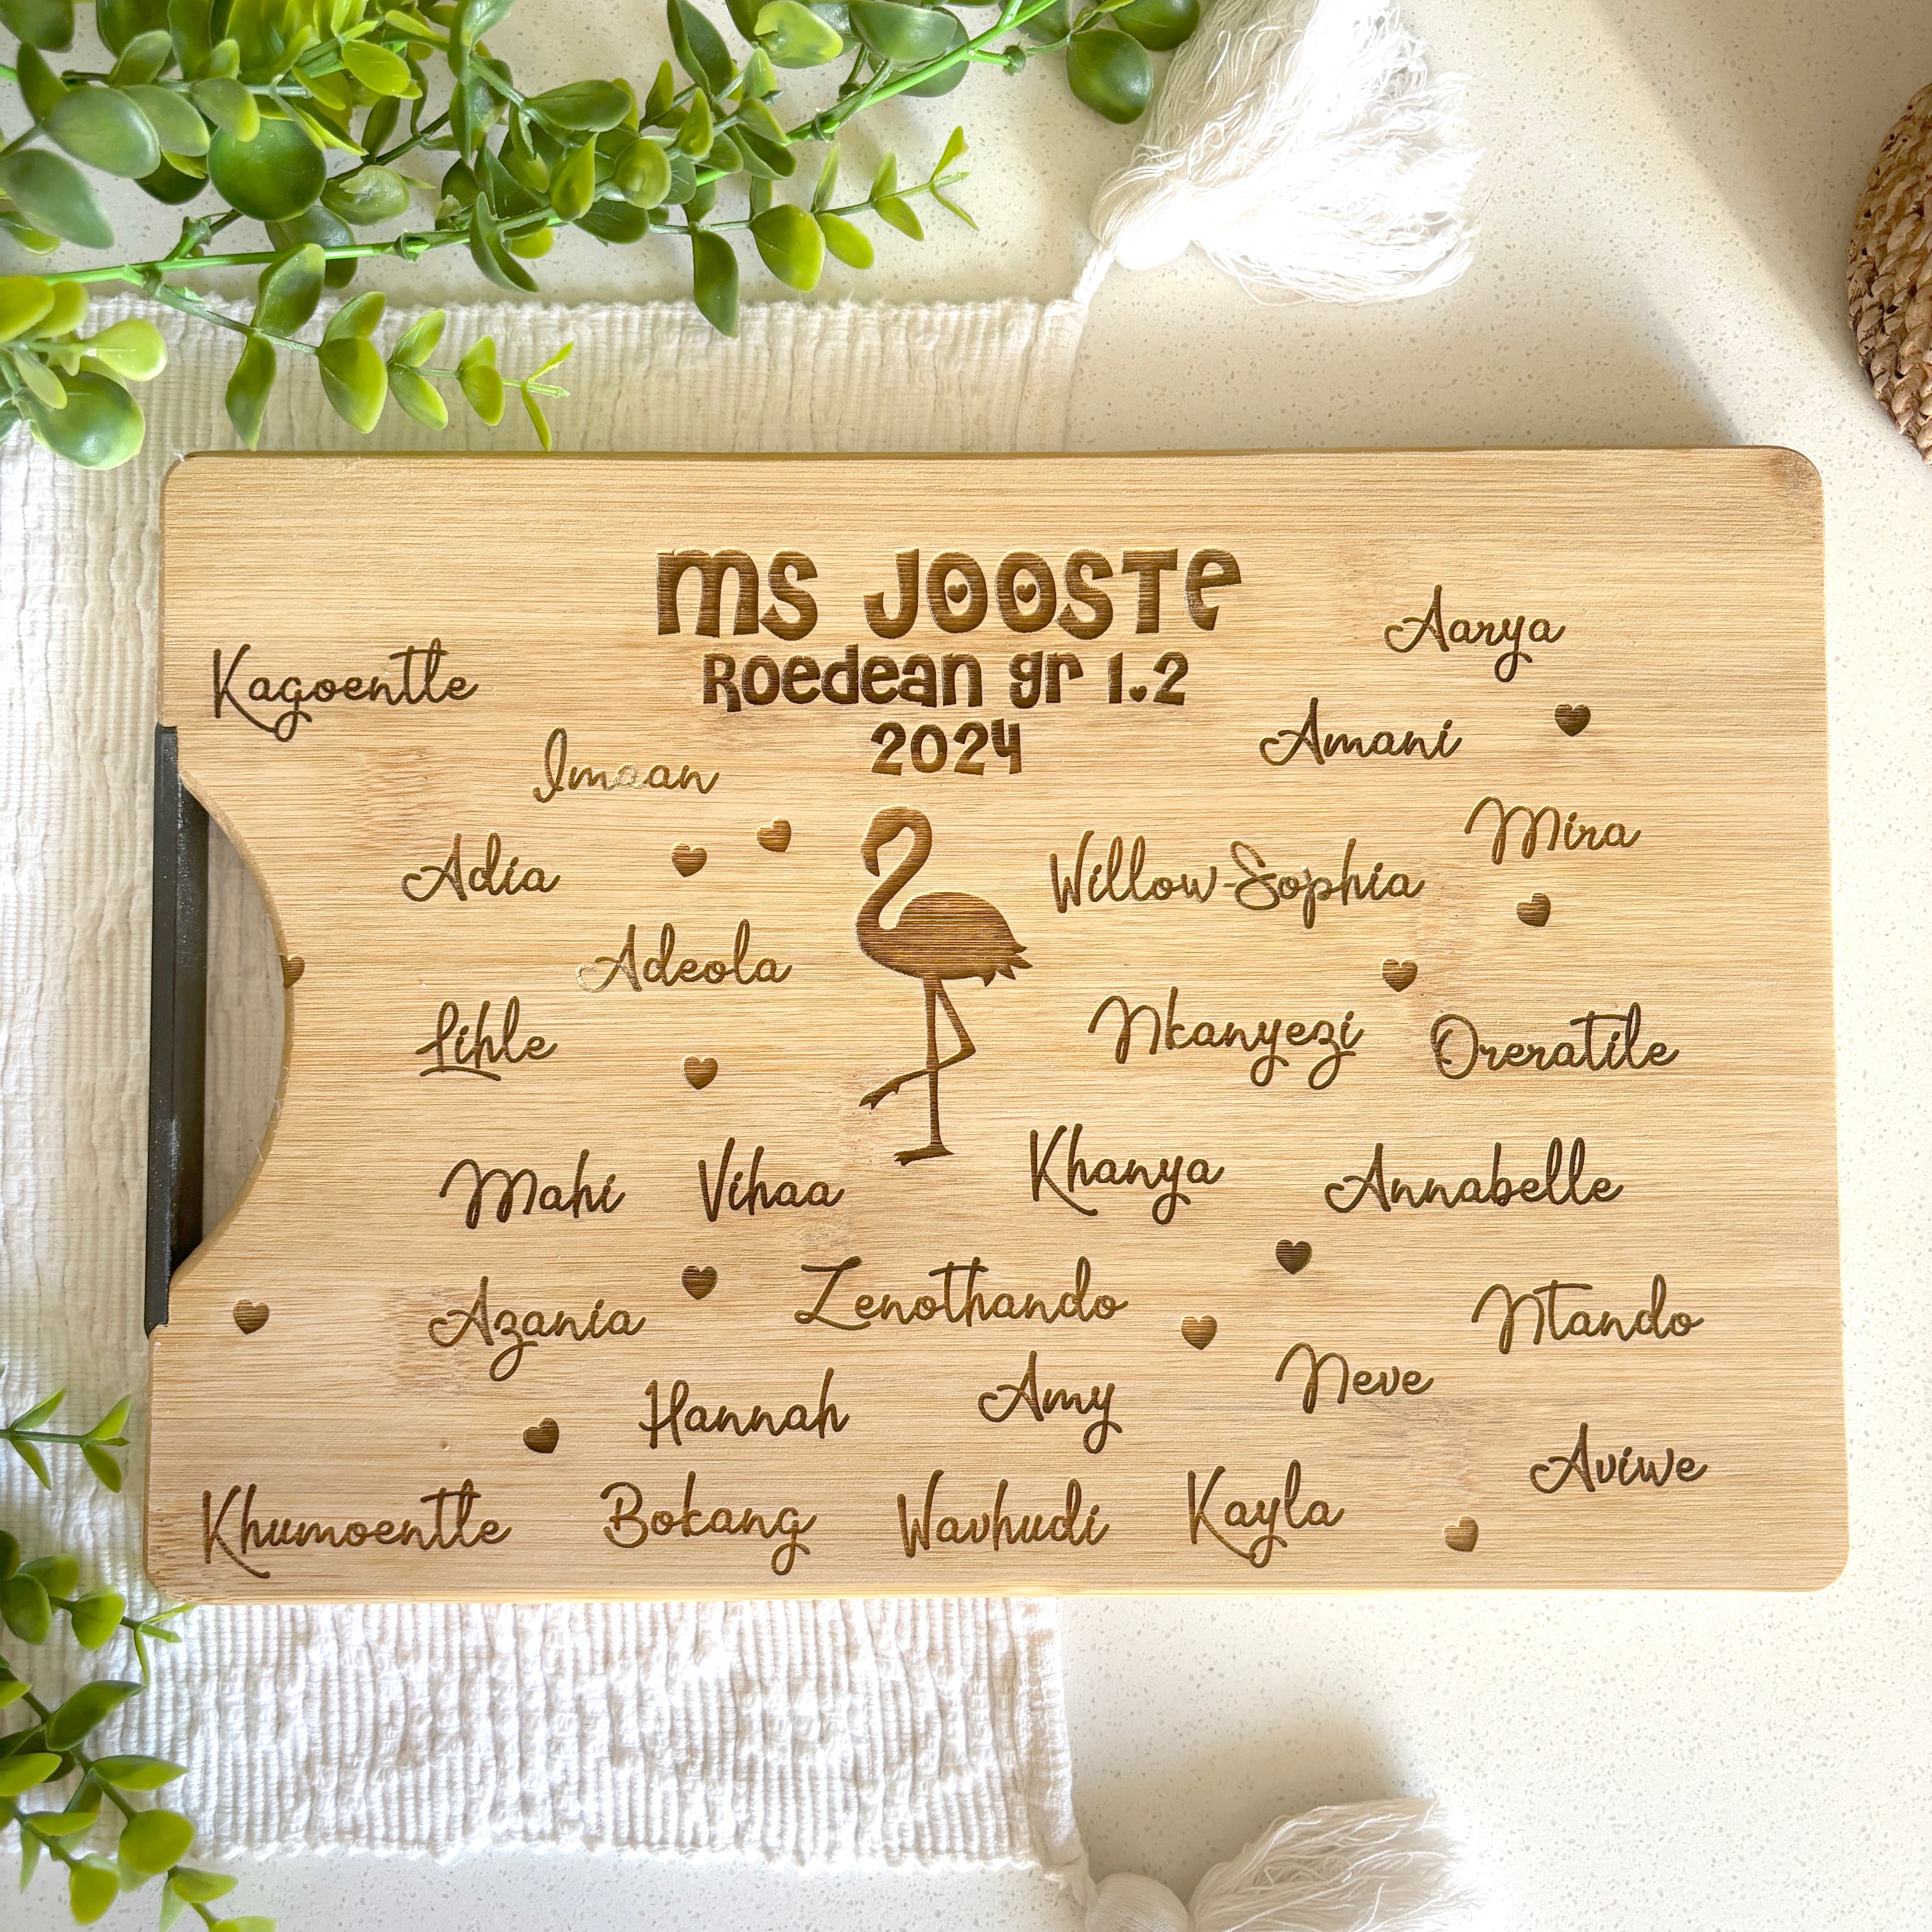 Ms Jooste
Roedean gr 1.2
2024
Kagoentle
Aarya
Imaan
Amani
Adia
Willow-Sophia
Mira
Adeola
Lihle
Nkanyezi
Oreratile
Mahi
Vihaa
Khanya
Annabelle
Azania
Zenothando
Ntando
Hannah
Amy
Neve
Aviwe
Khumoentle
Bokang
Wavhudi
Kayla